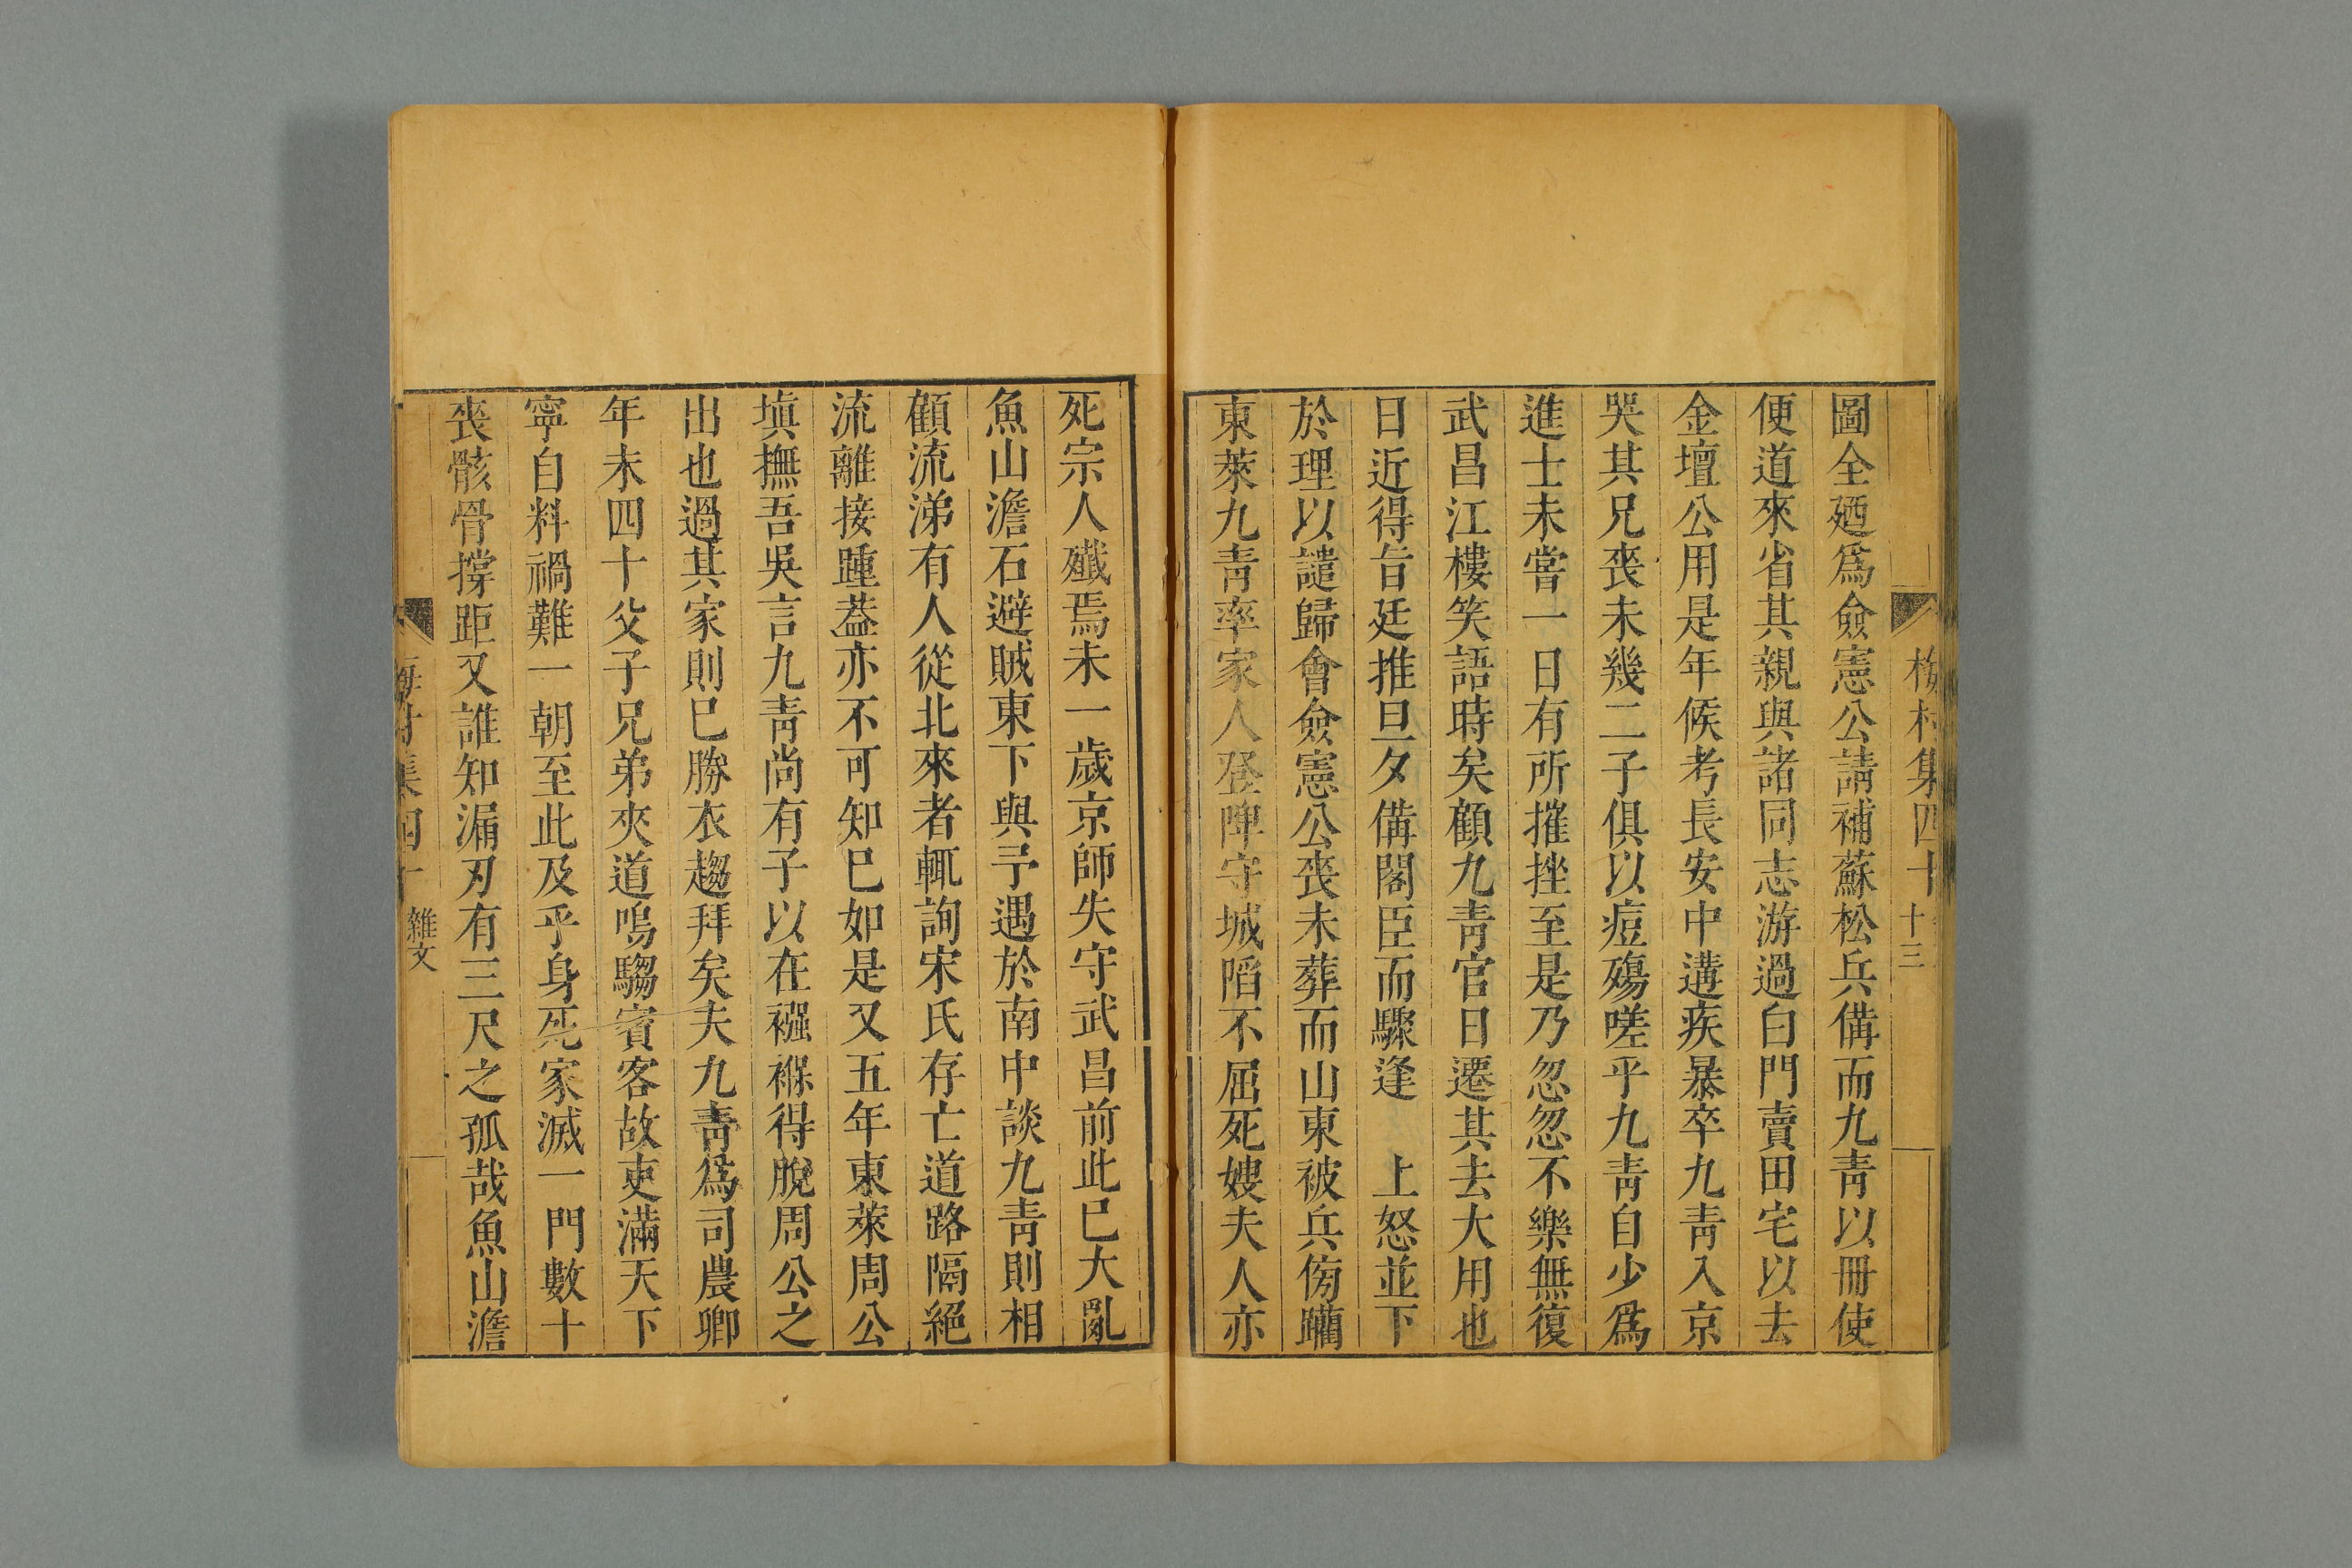 梅村集四十
十三
圖全廼爲僉憲公請補蘇松兵備而九靑以冊使
便道來省其親與諸同志游過白門賣田宅以去
金壇公用是年候考長安中遘疾暴卒九靑入京
哭其兄喪未幾二子俱以痘殤嗟乎九靑自少爲
進士未嘗一日有所摧挫至是乃忽忽不樂無復
武昌江樓笑語時矣顧九靑官日遷其去大用也
日近得旨廷推旦夕備閣臣而驟逢　上怒並下
於理以譴歸會僉憲公喪未葬而山東被兵傍躪
東萊九靑率家人登陴守城陷不屈死嫂夫人亦
死宗人殲焉未一歲京師失守武昌前此已大亂
魚山澹石避賊東下與予遇於南中談九靑則相
顧流涕有人從北來者輒詢宋氏存亡道路隔絕
流離接踵葢亦不可知已如是又五年東萊周公
塡撫吾吳言九靑尚有子以在襁褓得脫周公之
出也過其家則已勝衣趨拜矣夫九靑爲司農卿
年未四十父子兄弟夾道嗚騶賓客故吏滿天下
寧自料禍難一朝至此及乎身死家滅一門數十
喪骸骨撐距又誰知漏刃有三尺之孤哉魚山澹
梅村集四十
雜文